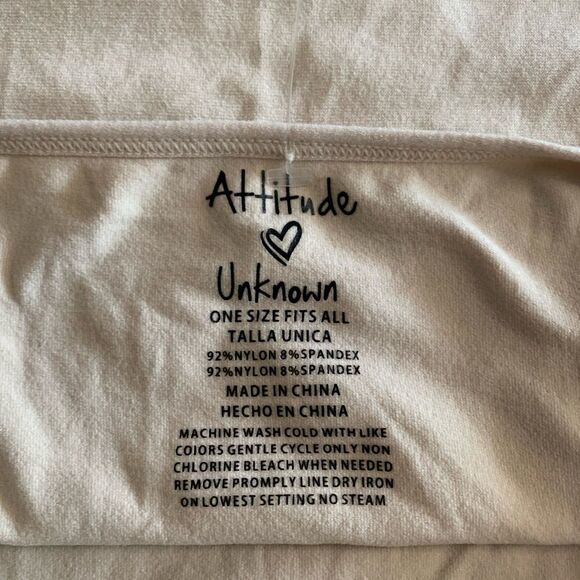 Attitude
Unknown
ONE SIZE FITS ALL
TALLA UNICA
92%NYLON 8%SPANDEX
92%NYLON 8%SPANDEX
MADE IN CHINA
HECHO EN CHINA
MACHINE WASH COLD WITH LIKE
COLORS GENTLE CYCLE ONLY NON
CHLORINE BLEACH WHEN NEEDED
REMOVE PROMPLY LINE DRY IRON
ON LOWEST SETTING NO STEAM